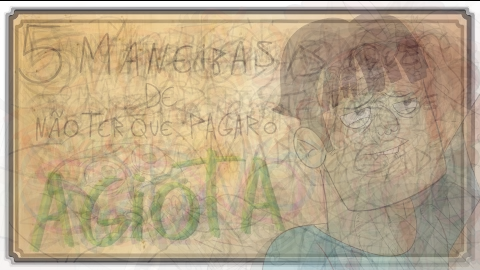 5 MANEIRAS
DE
NÃO TER QUE PAGAR O
AGIOTA